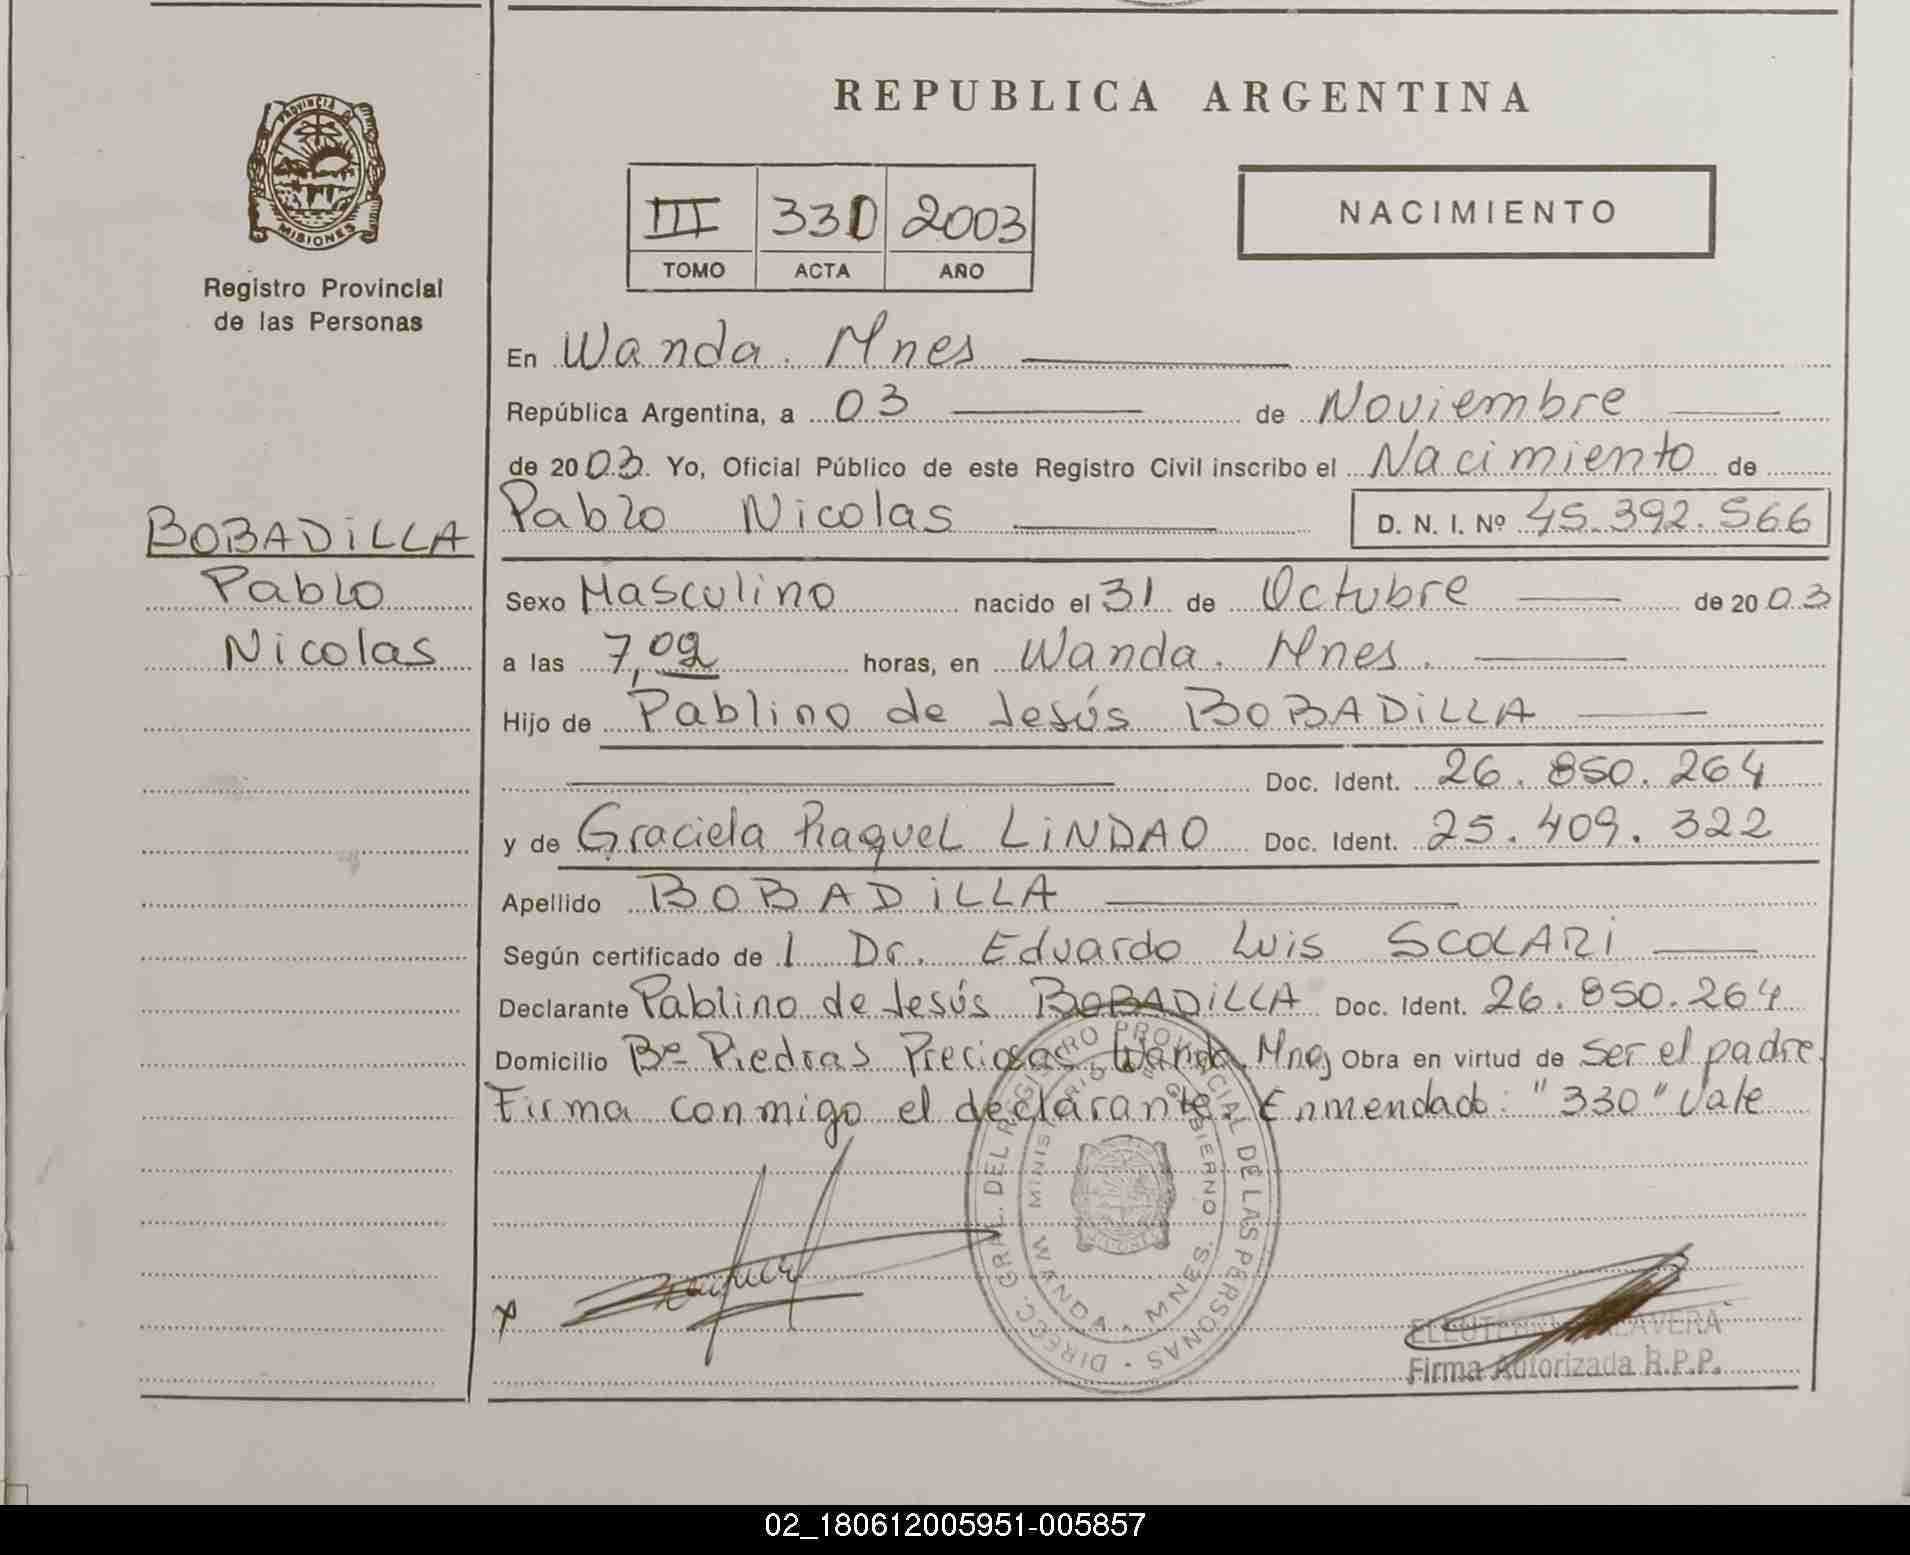 PROVINCIA DE
MISIONES
Registro Provincial
de las Personas
BOBADiLLA
Pablo
Nicolas
REPUBLICA ARGENTINA
III 330 2003
TOMO ACTA AÑO
NACIMIENTO
En Wanda. Mnes
República Argentina, a 03 de Noviembre
de 2003. Yo, Oficial Público de este Registro Civil inscribo el Nacimiento de
Pablo Nicolas D. N. I. Nº 45.392.566
Sexo Masculino nacido el 31 de Octubre de 2003
a las 7,02 horas, en Wanda. Mnes.
Hijo de Pablino de Jesús BOBADiLLA
Doc. Ident. 26.850.264
y de Graciela Raquel LiNDAO Doc. Ident. 25.409.322
Apellido BOBADiLLA
Según certificado de l Dr. Eduardo Luis SCOLARi
Declarante Pablino de Jesús BOBADiLLA Doc. Ident. 26.850.264
Domicilio Bº Piedras Preciosas Wanda. Mnes Obra en virtud de ser el padre.
Firma conmigo el declarante. Enmendado: "330" Vale
DIRECC. GRAL. DEL REGISTRO PROVINCIAL DE LAS PERSONAS
MINISTERIO DE GOBIERNO
WANDA - MNES.
x
Firma Autorizada R.P.P.
02_180612005951-005857